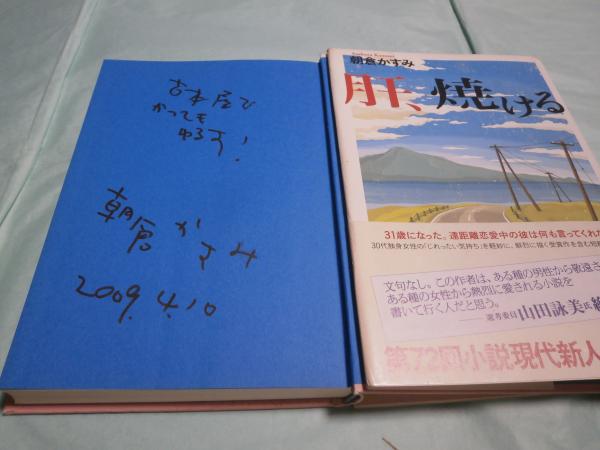 古本屋で
かっても
ゆるす!
朝倉かすみ
2009.4.10
朝倉かすみ
肝、焼ける
31歳になった。遠距離恋愛中の彼は何も言ってくれ
30代独身女性の「じれったい気持ち」を軽妙に、鮮烈に描く受賞作を含む短
文句なし。この作者は、ある種の男性から敬遠さ
ある種の女性から熱烈に愛される小説を
書いて行く人だと思う。
選考委員 山田詠美氏
第72回小説現代新人